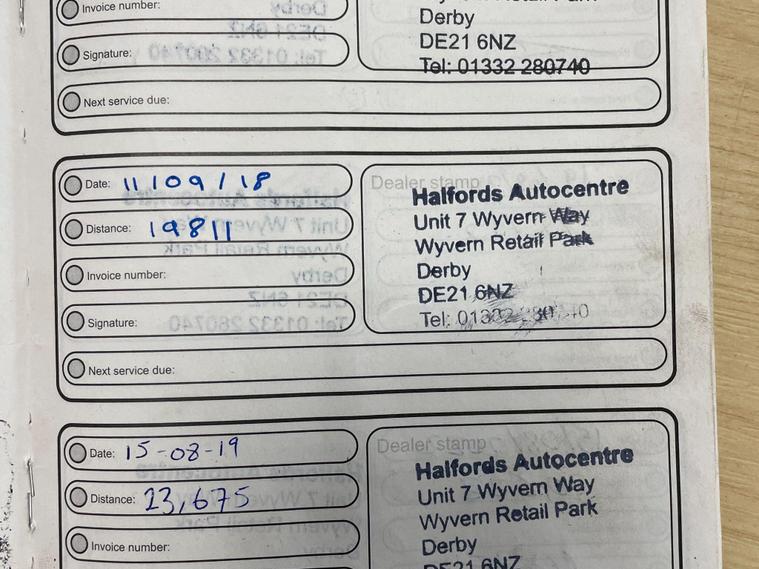 Invoice number:
Derby
DE21 6NZ
Signature:
Tel: 01332 280740
Next service due:
Date: 11/09/18
Dealer stamp
Halfords Autocentre
Unit 7 Wyvern Way
Wyvern Retail Park
Derby
DE21 6NZ
Tel: 01332 280740
Distance: 19811
Invoice number:
Signature:
Next service due:
Date: 15-08-19
Dealer stamp
Halfords Autocentre
Unit 7 Wyvern Way
Wyvern Retail Park
Derby
DE21 6NZ
Distance: 23,675
Invoice number: